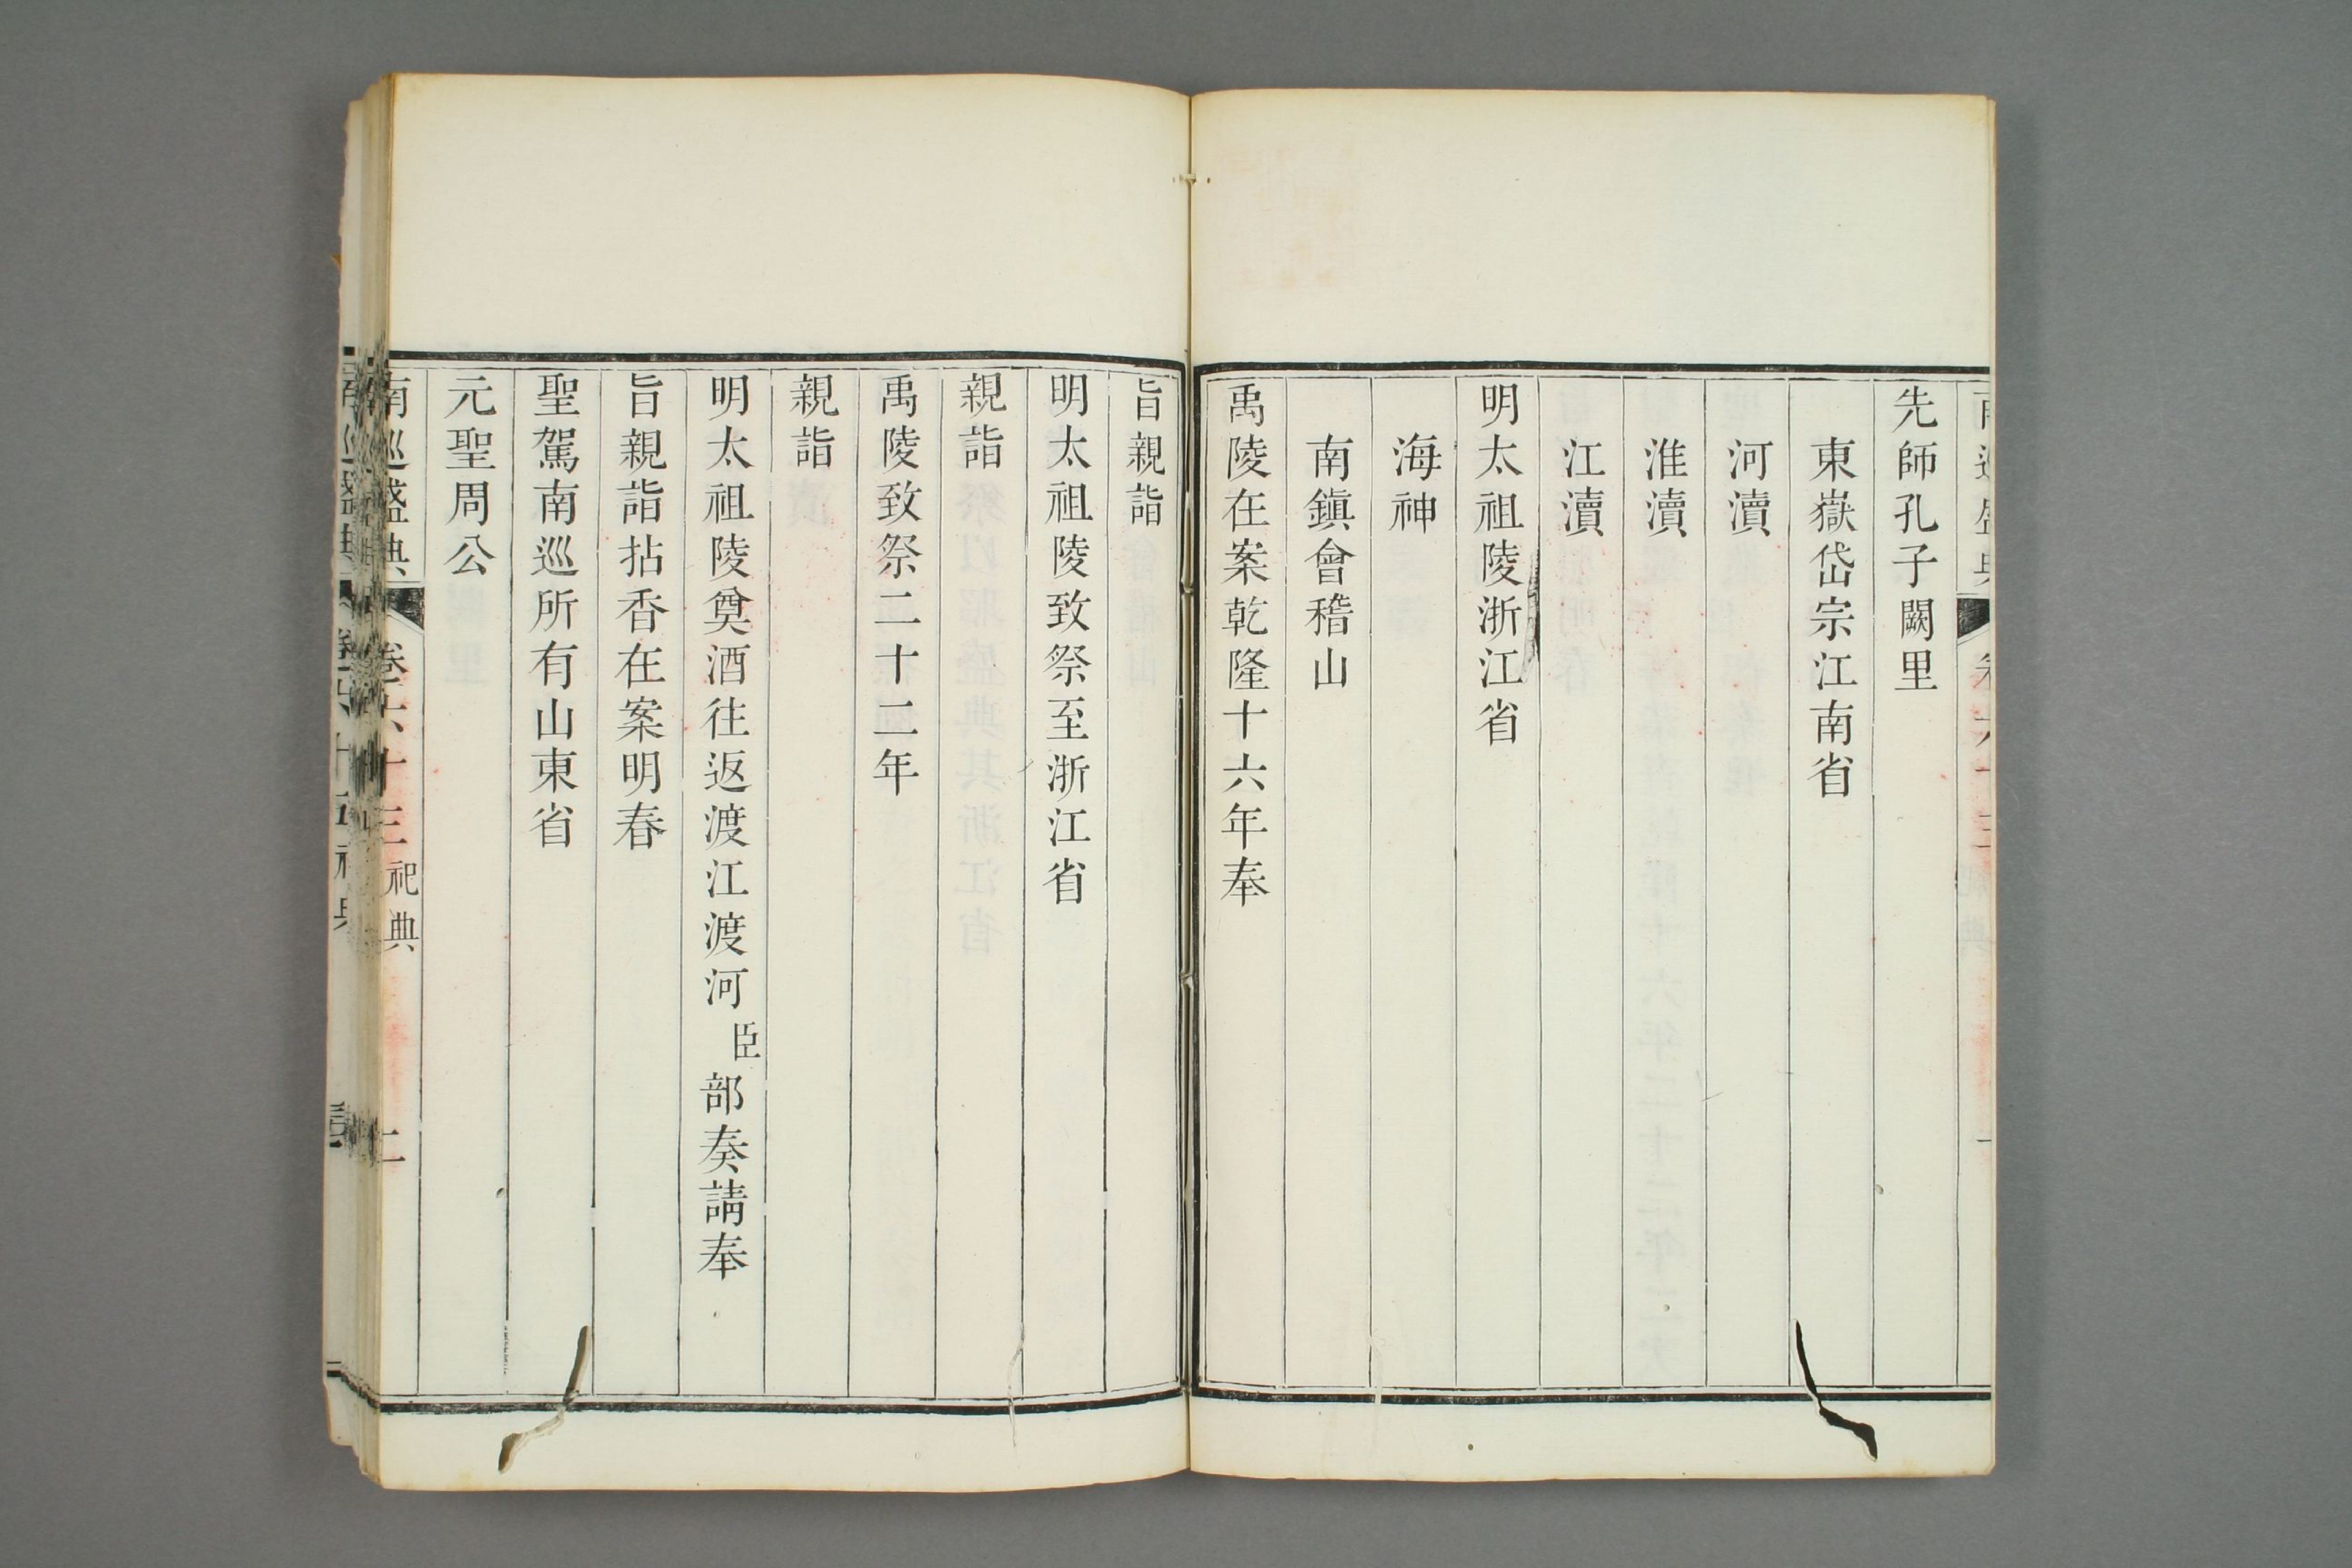 先師孔子闕里
東嶽岱宗江南省
河瀆
淮瀆
江瀆
明太祖陵浙江省
海神
南鎮會稽山
禹陵在案乾隆十六年奉
旨親詣
明太祖陵致祭至浙江省
親詣
禹陵致祭二十二年
親詣
明太祖陵奠酒往返渡江渡河臣部奏請奉
旨親詣拈香在案明春
聖駕南巡所有山東省
元聖周公
南巡盛典 卷六十三 祀典 二